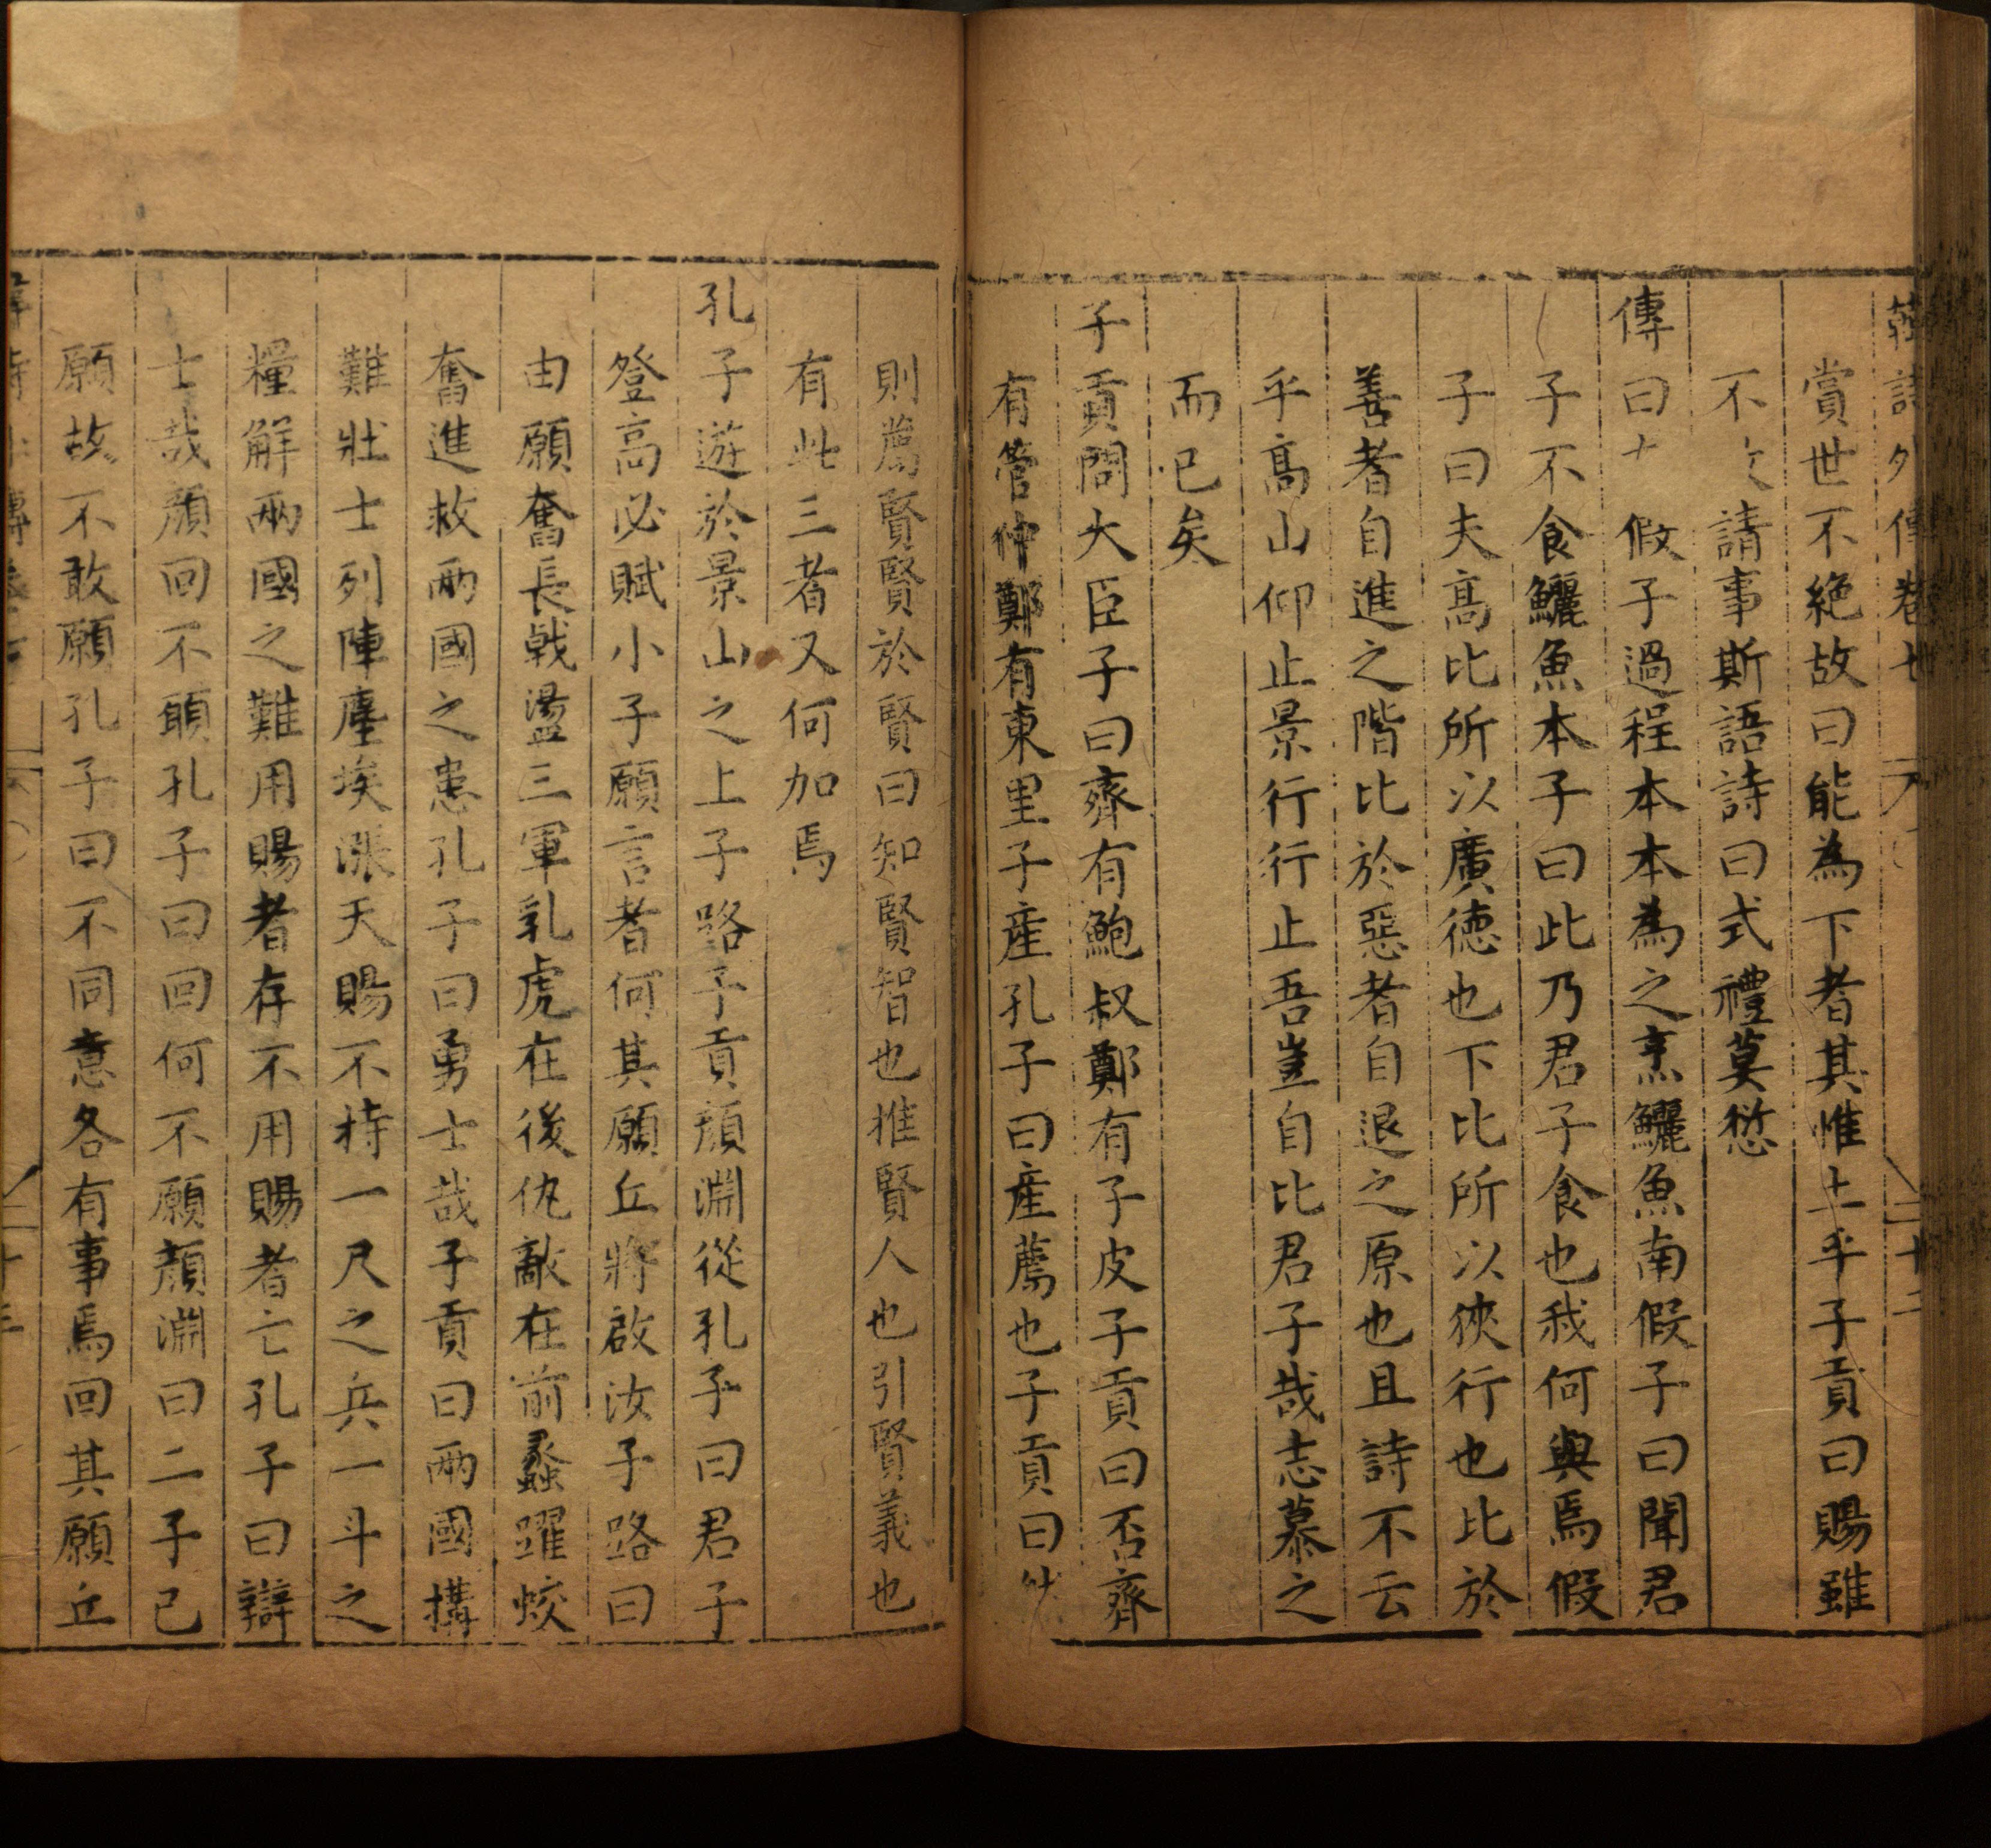 韓詩外傳卷七 二十二
賞世不絶故曰能為下者其惟土乎子貢曰賜雖
不 請事斯語詩曰式禮莫愆
傳曰 假子過程本本為之烹鱺魚南假子曰聞君
子不食鱺魚本子曰此乃君子食也我何與焉假
子曰夫高比所以廣徳也下比所以狹行也比於
善者自進之階比於惡者自退之原也且詩不云
乎高山仰止景行行止吾豈自比君子哉志慕之
而已矣
子貢問大臣子曰齊有鮑叔鄭有子皮子貢曰否齊
有管仲鄭有東里子産孔子曰産薦也子貢曰
則薦賢賢於賢曰知賢智也推賢人也引賢義也
有此三者又何加焉
孔子遊於景山之上子路子貢顔淵從孔子曰君子
登高必賦小子願言者何其願丘將啟汝子路曰
由願奮長戟盪三軍乳虎在後仇敵在前蠡躍蛟
奮進救兩國之患孔子曰勇士哉子貢曰兩國搆
難壯士列陣塵埃漲天賜不持一尺之兵一斗之
糧解兩國之難用賜者存不用賜者亡孔子曰辯
士哉顔回不願孔子曰回何不願顔淵曰二子已
願故不敢願孔子曰不同意各有事焉回其願丘